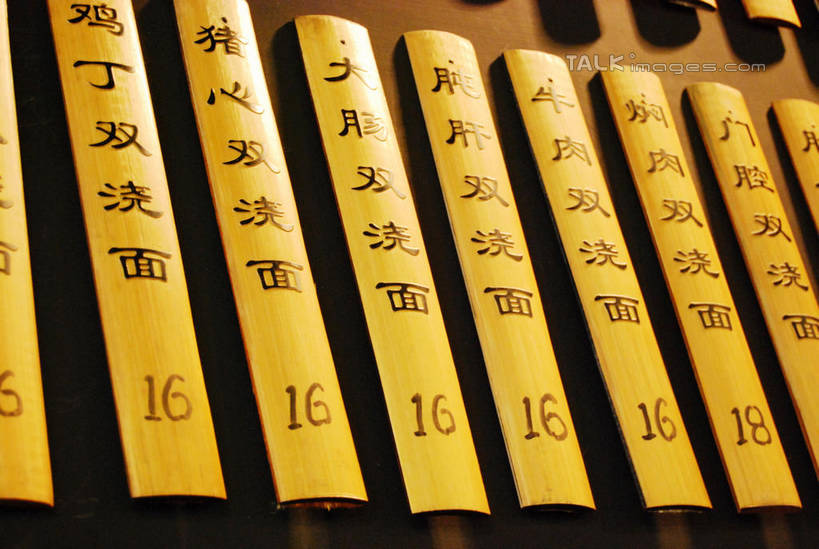 鸡丁双浇面
16
猪心双浇面
16
大肠双浇面
16
肫肝双浇面
16
牛肉双浇面
16
焖肉双浇面
16
门腔双浇面
18
TALKimages.com